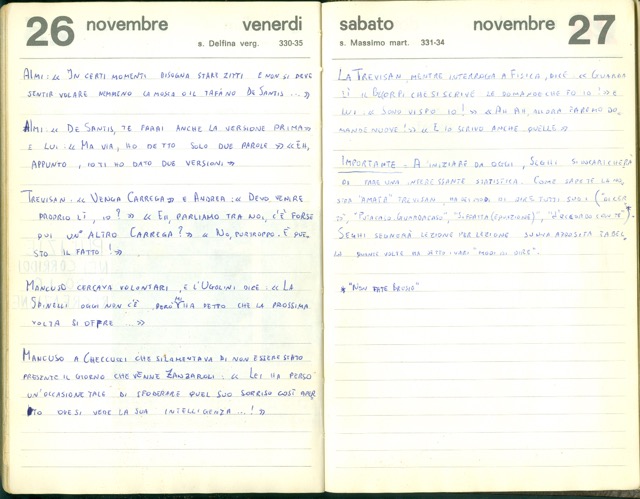 26 novembre venerdi
s. Delfina verg. 330-35
ALMI: « IN CERTI MOMENTI BISOGNA STARE ZITTI E NON SI DEVE
SENTIR VOLARE NEMMENO LA MOSCA O IL TAFANO DE SANTIS ... »
ALMI: « DE SANTIS, TE FARAI ANCHE LA VERSIONE PRIMA »
E LUI: « MA VIA, HO DETTO SOLO DUE PAROLE » « EH,
APPUNTO, IO TI HO DATO DUE VERSIONI »
TREVISAN: « VENGA CARREGA » E ANDREA: « DEVO VENIRE
PROPRIO LÌ, IO? » « EH, PARLIAMO TRA NOI, C'È FORSE
QUI UN ALTRO CARREGA? » « NO, PURTROPPO. È QUE_
STO IL FATTO! »
MANCUSO CERCAVA VOLONTARI, E L'UGOLINI DICE: « LA
SPINELLI OGGI NON C'È, PERÒ MI HA DETTO CHE LA PROSSIMA
VOLTA SI OFFRE ... »
MANCUSO A CHECCUCCI CHE SI LAMENTAVA DI NON ESSERE STATO
PRESENTE IL GIORNO CHE VENNE ZANZAROLI: « LEI HA PERSO
UN'OCCASIONE TALE DI SFODERARE QUEL SUO SORRISO COSÌ APER
TO OVE SI VEDE LA SUA INTELLIGENZA ...! »
sabato novembre 27
s. Massimo mart. 331-34
LA TREVISAN, MENTRE INTERROGA A FISICA, DICE « GUARDA
LÌ IL CHE SI SCRIVE LE DOMANDE CHE FO IO! » E
LUI: « SONO VISPO IO! » « AH AH, ALLORA FAREMO DO_
MANDE NUOVE! » « E IO SCRIVO ANCHE QUELLE »
IMPORTANTE: A INIZIARE DA OGGI, SEGHI SI INCARICHERÀ
DI FARE UNA INTERESSANTE STATISTICA. COME SAPETE LA NO_
STRA "AMATA" TREVISAN, HA DEI MODI DI DIRE TUTTI SUOI (
"D'ACCORDO CON TE")*
SEGHI SEGNERÀ LEZIONE PER LEZIONE SU UNA APPOSITA TABEL
LA QUANTE VOLTE HA DETTO I VARI "MODI DI DIRE".
* "NON FATE BRUSIO"